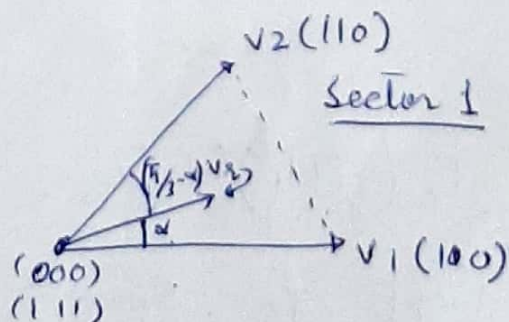 V2 (110)
Sector 1
(π/3-α)
α
V1 (100)
(000)
(111)